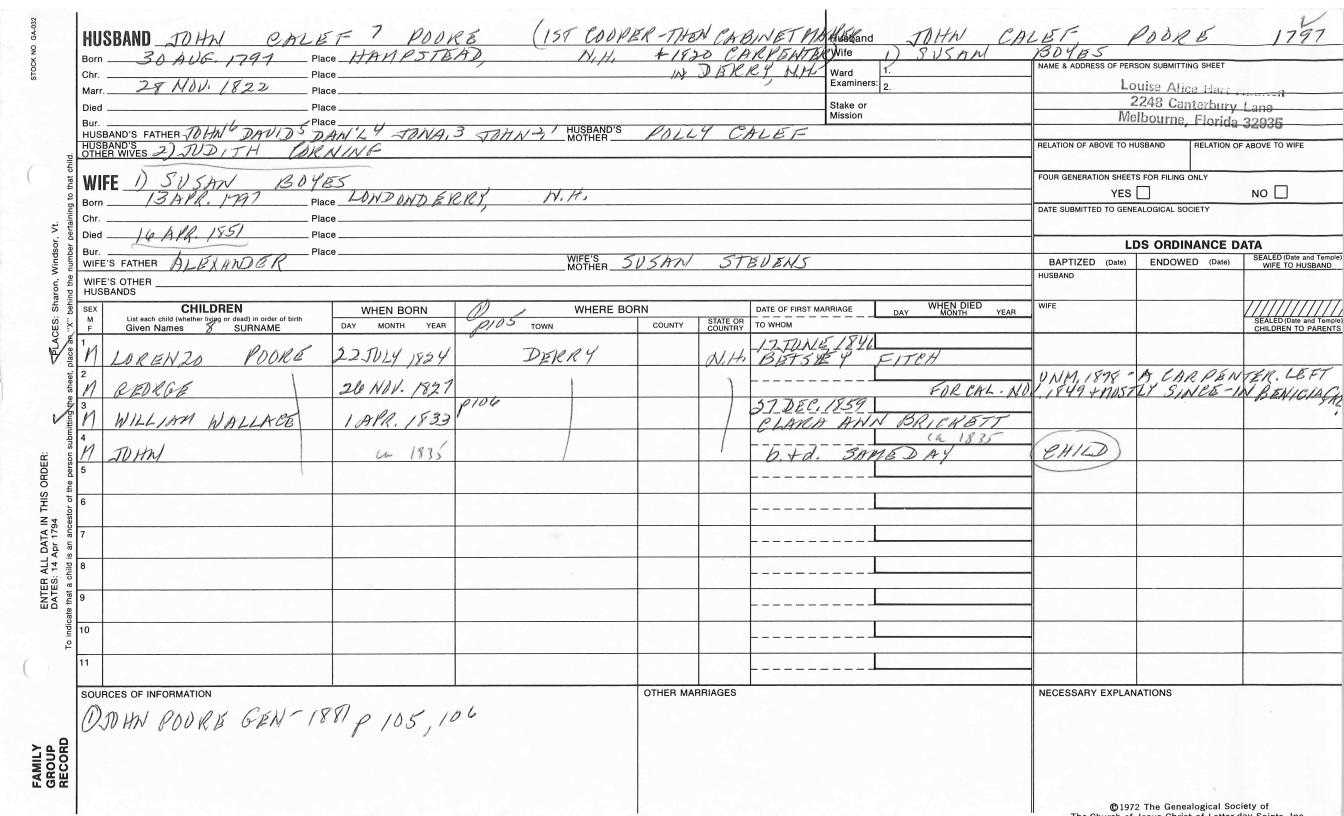 STOCK NO. GA-032
HUSBAND JOHN CALEF 7 POORE (1ST COOPER-THEN CABINET MAKER
Born 30 AUG. 1797 Place HAMPSTEAD, N.H. + 1820 CARPENTER
Chr. Place IN DERRY, N.H.
Marr. 28 NOV. 1822 Place
Died Place
Bur. Place
HUSBAND'S FATHER JOHN 6 DAVID 5 DAN'L 4 JONA. 3 JOHN 2, 1 HUSBAND'S MOTHER POLLY CALEF
HUSBAND'S OTHER WIVES 2) JUDITH CORNING
Husband JOHN CALEF, POORE 1797
Wife 1) SUSAN BOYES
Ward Examiners: 1.
2.
Stake or Mission
NAME & ADDRESS OF PERSON SUBMITTING SHEET
Louise Alice Hart
2248 Canterbury Lane
Melbourne, Florida 32935
RELATION OF ABOVE TO HUSBAND RELATION OF ABOVE TO WIFE
FOUR GENERATION SHEETS FOR FILING ONLY
YES NO
DATE SUBMITTED TO GENEALOGICAL SOCIETY
WIFE 1) SUSAN BOYES
Born 13 APR. 1797 Place LONDONDERRY, N.H.
Chr. Place
Died 16 APR. 1851 Place
Bur. Place
WIFE'S FATHER ALEXANDER WIFE'S MOTHER SUSAN STEVENS
WIFE'S OTHER HUSBANDS
LDS ORDINANCE DATA
BAPTIZED (Date) ENDOWED (Date) SEALED (Date and Temple) WIFE TO HUSBAND
HUSBAND
WIFE
SEALED (Date and Temple) CHILDREN TO PARENTS
SEX M F CHILDREN List each child (whether living or dead) in order of birth Given Names 8 SURNAME WHEN BORN DAY MONTH YEAR WHERE BORN ① p105 TOWN COUNTY STATE OR COUNTRY DATE OF FIRST MARRIAGE TO WHOM WHEN DIED DAY MONTH YEAR
1 M LORENZO POORE 22 JULY 1824 DERRY N.H. 17 JUNE, 1846 BETSEY FITCH
2 M GEORGE 26 NOV. 1827 UNM, 1878 - A CARPENTER. LEFT
FOR CAL. NOV. 1849 + MOSTLY SINCE - IN BENICIA,
3 M WILLIAM WALLACE 1 APR. 1833 p106 27 DEC, 1859 CLARA ANN BRICKETT
4 M JOHN ca 1835 b. + d. SAME DAY ca 1835 CHILD
5
6
7
8
9
10
11
SOURCES OF INFORMATION OTHER MARRIAGES NECESSARY EXPLANATIONS
① JOHN POORE GEN - 1881 p 105, 106
ENTER ALL DATA IN THIS ORDER:
DATES: 14 Apr 1794 PLACES: Sharon, Windsor, Vt.
To indicate that a child is an ancestor of the person submitting the sheet, place an "X" behind the number pertaining to that child.
FAMILY GROUP RECORD
©1972 The Genealogical Society of
The Church of Jesus Christ of Latter-day Saints, Inc.